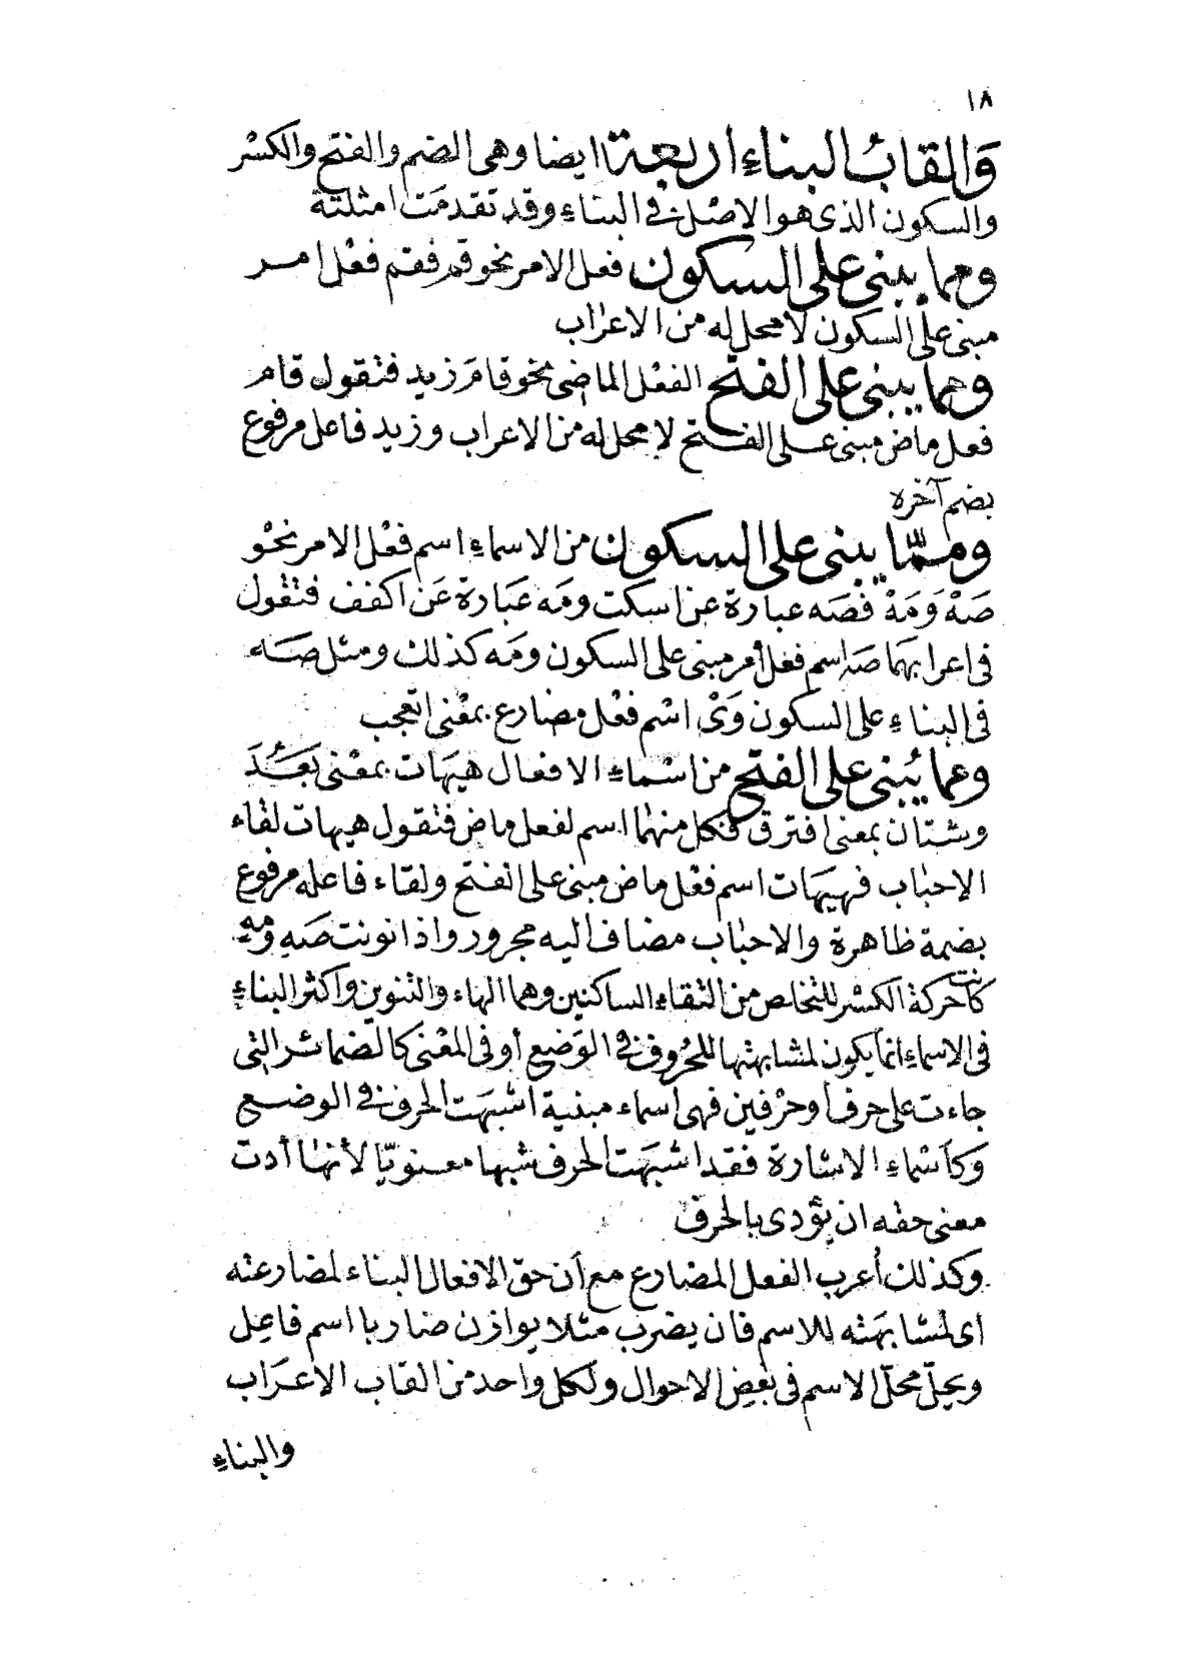 ١٨
وَالقابُ البناءِ اربعة ايضا وهى الضم والفتح والكسْر
والسكون الذى هو الاصْل فى البناءِ وقد تقدمَت امثلتة
ومما يبنى على السكون فعل الامر نحو قم فقم فعْل امر
مبنى على السكون لا محل له من الاعراب
ومما يبنى على الفتح الفعْل الماضى نحو قامَ زيد فتقول قام
فعل ماض مبنى على الفتح لا محل له من الاعراب وزيد فاعل مرفوع
بضم آخره
وممّا يبنى على السكون من الاسماءِ اسم فعْل الامر نحْو
صَهْ وَمَهْ فصَه عبارة عن اسكت ومَه عبَارة عَن اكفف فتقول
فى اعرابهما صَه اسم فعْل أمر مبنى على السكون ومَه كذلك ومثل صَه
فى البناءِ على السكون وَىْ اسْم فعْل مضارع بمعْنى اتعجب
ومما يُبنى على الفتح من اسْماءِ الافعال هيهَات بمعْنى بَعُدَ
وشتان بمعنى افترق فكل منهما اسم لفعل ماض فتقول هيهات لقاء
الاحباب فهيهَات اسم فعْل ماض مبنى على الفتح ولقاء فاعله مرفوع
بضمة ظاهرة والاحباب مضاف اليه مجرور واذا نونت صَهٍ ومهٍ
كانت حركة الكسْر للتخلص من التقاءِ الساكنين وهما الهاء والتنوين واكثر البناءِ
فى الاسماءِ انما يكون لمشابهتها للحُروف فى الوَضِع أو فى المعْنى كالضمائر التى
جاءت على حرف أو حرْفين فهى اسماء مبنية اشبهَت الحرف فى الوضع
وكاسْماءِ الاشارة فقد اشبهَت الحرف شبها معنويّا لأنها أدت
معنى حقه ان يؤدى بالحرف
وكذلك أعرب الفعل المضارع مع أن حق الافعال البناء لمضارعته
اى لمشابهَته للاسم فان يضرب مثلا يوازن ضاربا اسم فاعِل
ويحلّ محلّ الاسم فى بعْضِ الاحوال ولكل واحد من القاب الاعرَاب
والبناءِ